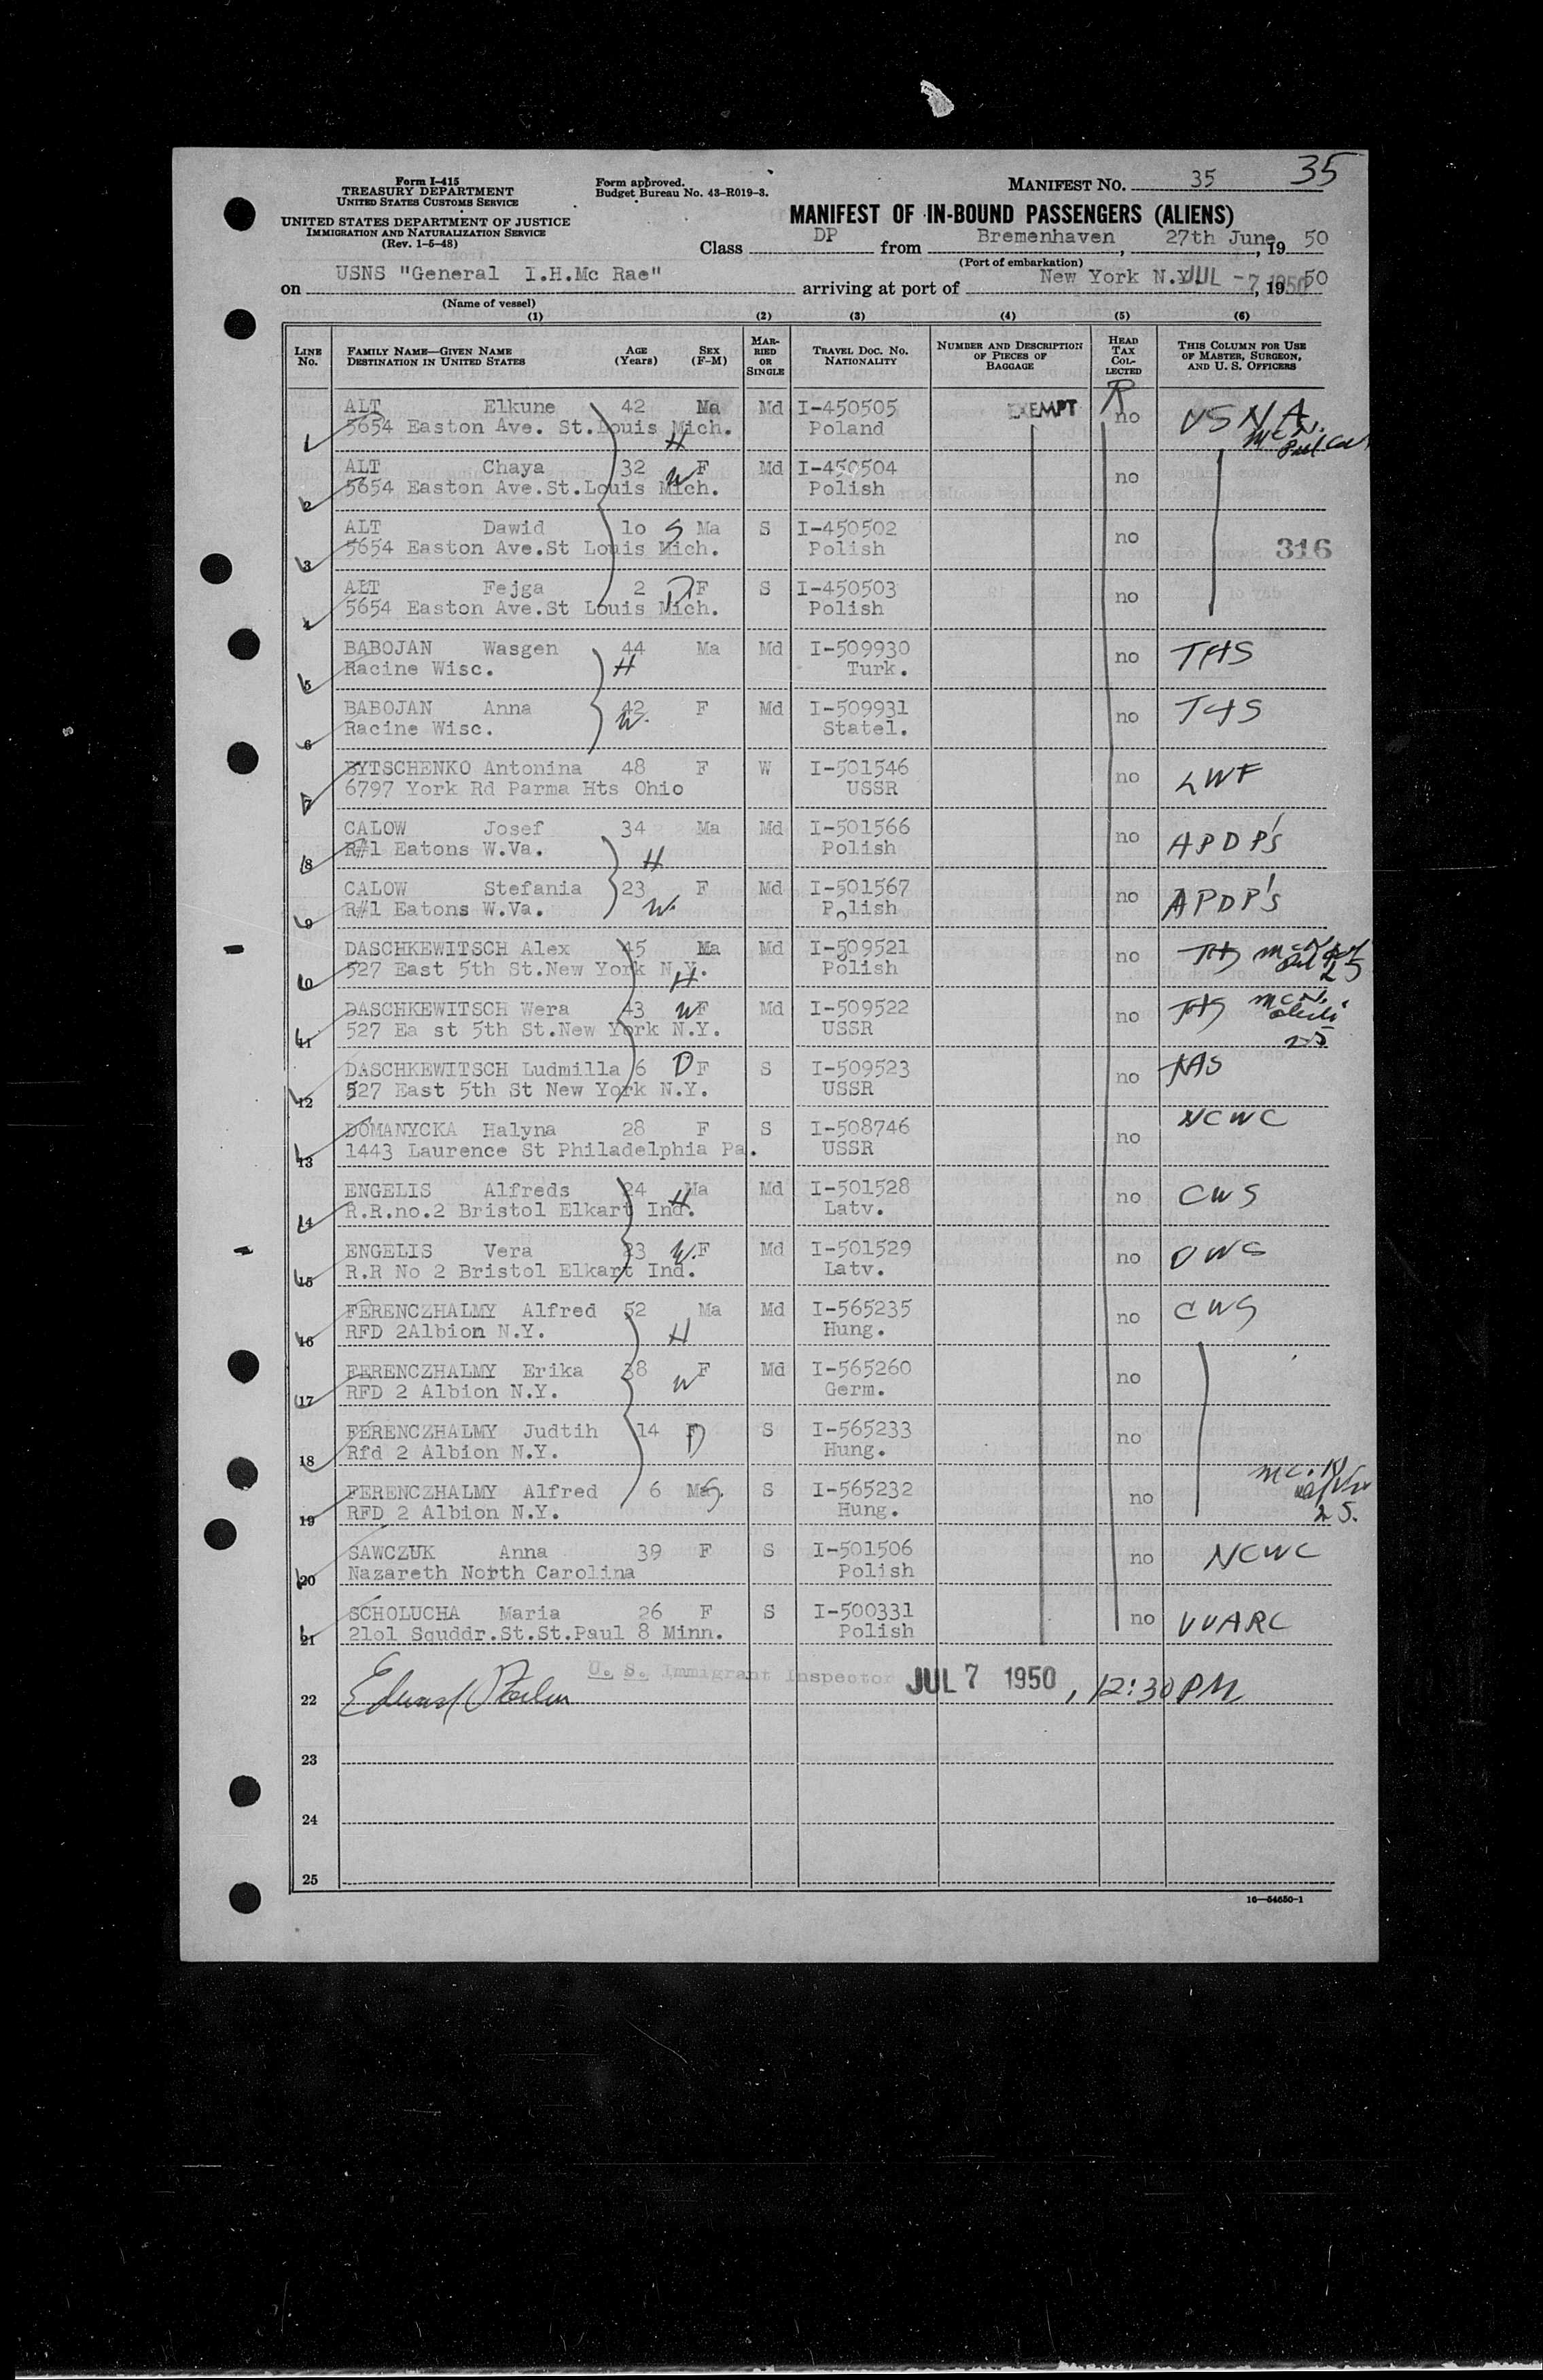 Form I-415
TREASURY DEPARTMENT
UNITED STATES CUSTOMS SERVICE
UNITED STATES DEPARTMENT OF JUSTICE
IMMIGRATION AND NATURALIZATION SERVICE
(Rev. 1-5-48)
Form approved.
Budget Bureau No. 43-R019-3.
MANIFEST NO. 35 35
MANIFEST OF IN-BOUND PASSENGERS (ALIENS)
Class DP from Bremenhaven, 27th June, 19 50
(Port of embarkation)
on USNS "General I.H.Mc Rae" arriving at port of New York N.Y. JUL -7 1950, 19 50
(Name of vessel)
(1) (2) (3) (4) (5) (6)
LINE NO. FAMILY NAME—GIVEN NAME DESTINATION IN UNITED STATES AGE (Years) SEX (F-M) MARRIED OR SINGLE TRAVEL DOC. NO. NATIONALITY NUMBER AND DESCRIPTION OF PIECES OF BAGGAGE HEAD TAX COLLECTED THIS COLUMN FOR USE OF MASTER, SURGEON, AND U. S. OFFICERS
ALT Elkune 42 Ma Md I-450505 EXEMPT no USNA
5654 Easton Ave. St.Louis Mich. H Poland
2 ALT Chaya 32 W F Md I-450504 no
5654 Easton Ave.St.Louis Mich. Polish
3 ALT Dawid 1o S Ma S I-450502 no 316
5654 Easton Ave.St Louis Mich. Polish
4 ALT Fejga 2 D F S I-450503 no
5654 Easton Ave.St Louis Mich. Polish
5 BABOJAN Wasgen 44 Ma Md I-509930 no THS
Racine Wisc. H Turk.
6 BABOJAN Anna 42 F Md I-509931 no THS
Racine Wisc. W. Statel.
7 BYTSCHENKO Antonina 48 F W I-501546 no LWF
6797 York Rd Parma Hts Ohio USSR
8 CALOW Josef 34 Ma Md I-501566 no APDP's
R#1 Eatons W.Va. H Polish
9 CALOW Stefania 23 F Md I-501567 no APDP's
R#1 Eatons W.Va. W. Polish
DASCHKEWITSCH Alex 45 Ma Md I-509521 no
527 East 5th St.New York N.Y. H Polish
11 DASCHKEWITSCH Wera 43 W F Md I-509522 no
527 Ea st 5th St.New York N.Y. USSR
12 DASCHKEWITSCH Ludmilla 6 D F S I-509523 no
527 East 5th St New York N.Y. USSR
13 DOMANYCKA Halyna 28 F S I-508746 no NCWC
1443 Laurence St Philadelphia Pa. USSR
14 ENGELIS Alfreds 24 Ma Md I-501528 no CWS
R.R.no.2 Bristol Elkart Ind. H Latv.
15 ENGELIS Vera 23 W. F Md I-501529 no CWS
R.R No 2 Bristol Elkart Ind. Latv.
16 FERENCZHALMY Alfred 52 Ma Md I-565235 no CWS
RFD 2Albion N.Y. H Hung.
17 FERENCZHALMY Erika 38 F Md I-565260 no
RFD 2 Albion N.Y. W Germ.
18 FERENCZHALMY Judtih 14 F S I-565233 no
Rfd 2 Albion N.Y. D Hung.
19 FERENCZHALMY Alfred 6 Ma S. S I-565232 no
RFD 2 Albion N.Y. Hung.
20 SAWCZUK Anna 39 F S I-501506 no NCWC
Nazareth North Carolina Polish
21 SCHOLUCHA Maria 26 F S I-500331 no UUARC
21o1 Scuddr.St.St.Paul 8 Minn. Polish
22 U. S. Immigrant Inspector JUL 7 1950, 12:30 PM
23
24
25
16—54650-1